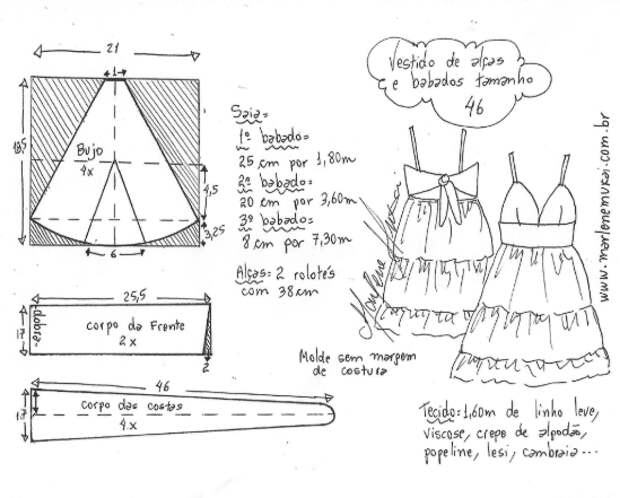 Vestido de alças
e babados tamanho
46
21
1
18,5
Bujo
4x
4,5
3,25
6
Saia=
1º babado=
25 cm por 1,80m
2º babado=
20 cm por 3,60m
3º babado=
8 cm por 7,30m
Alças: 2 rolotés
com 38cm
25,5
-dobra-
17
corpo da Frente
2x
2
Molde sem margem
de costura
46
17
corpo das costas
4x
Marlene Mukai
www.marlenemukai.com.br
Tecido=1,60m de linho leve,
viscose, crepe de algodão,
popeline, lesi, cambraia...